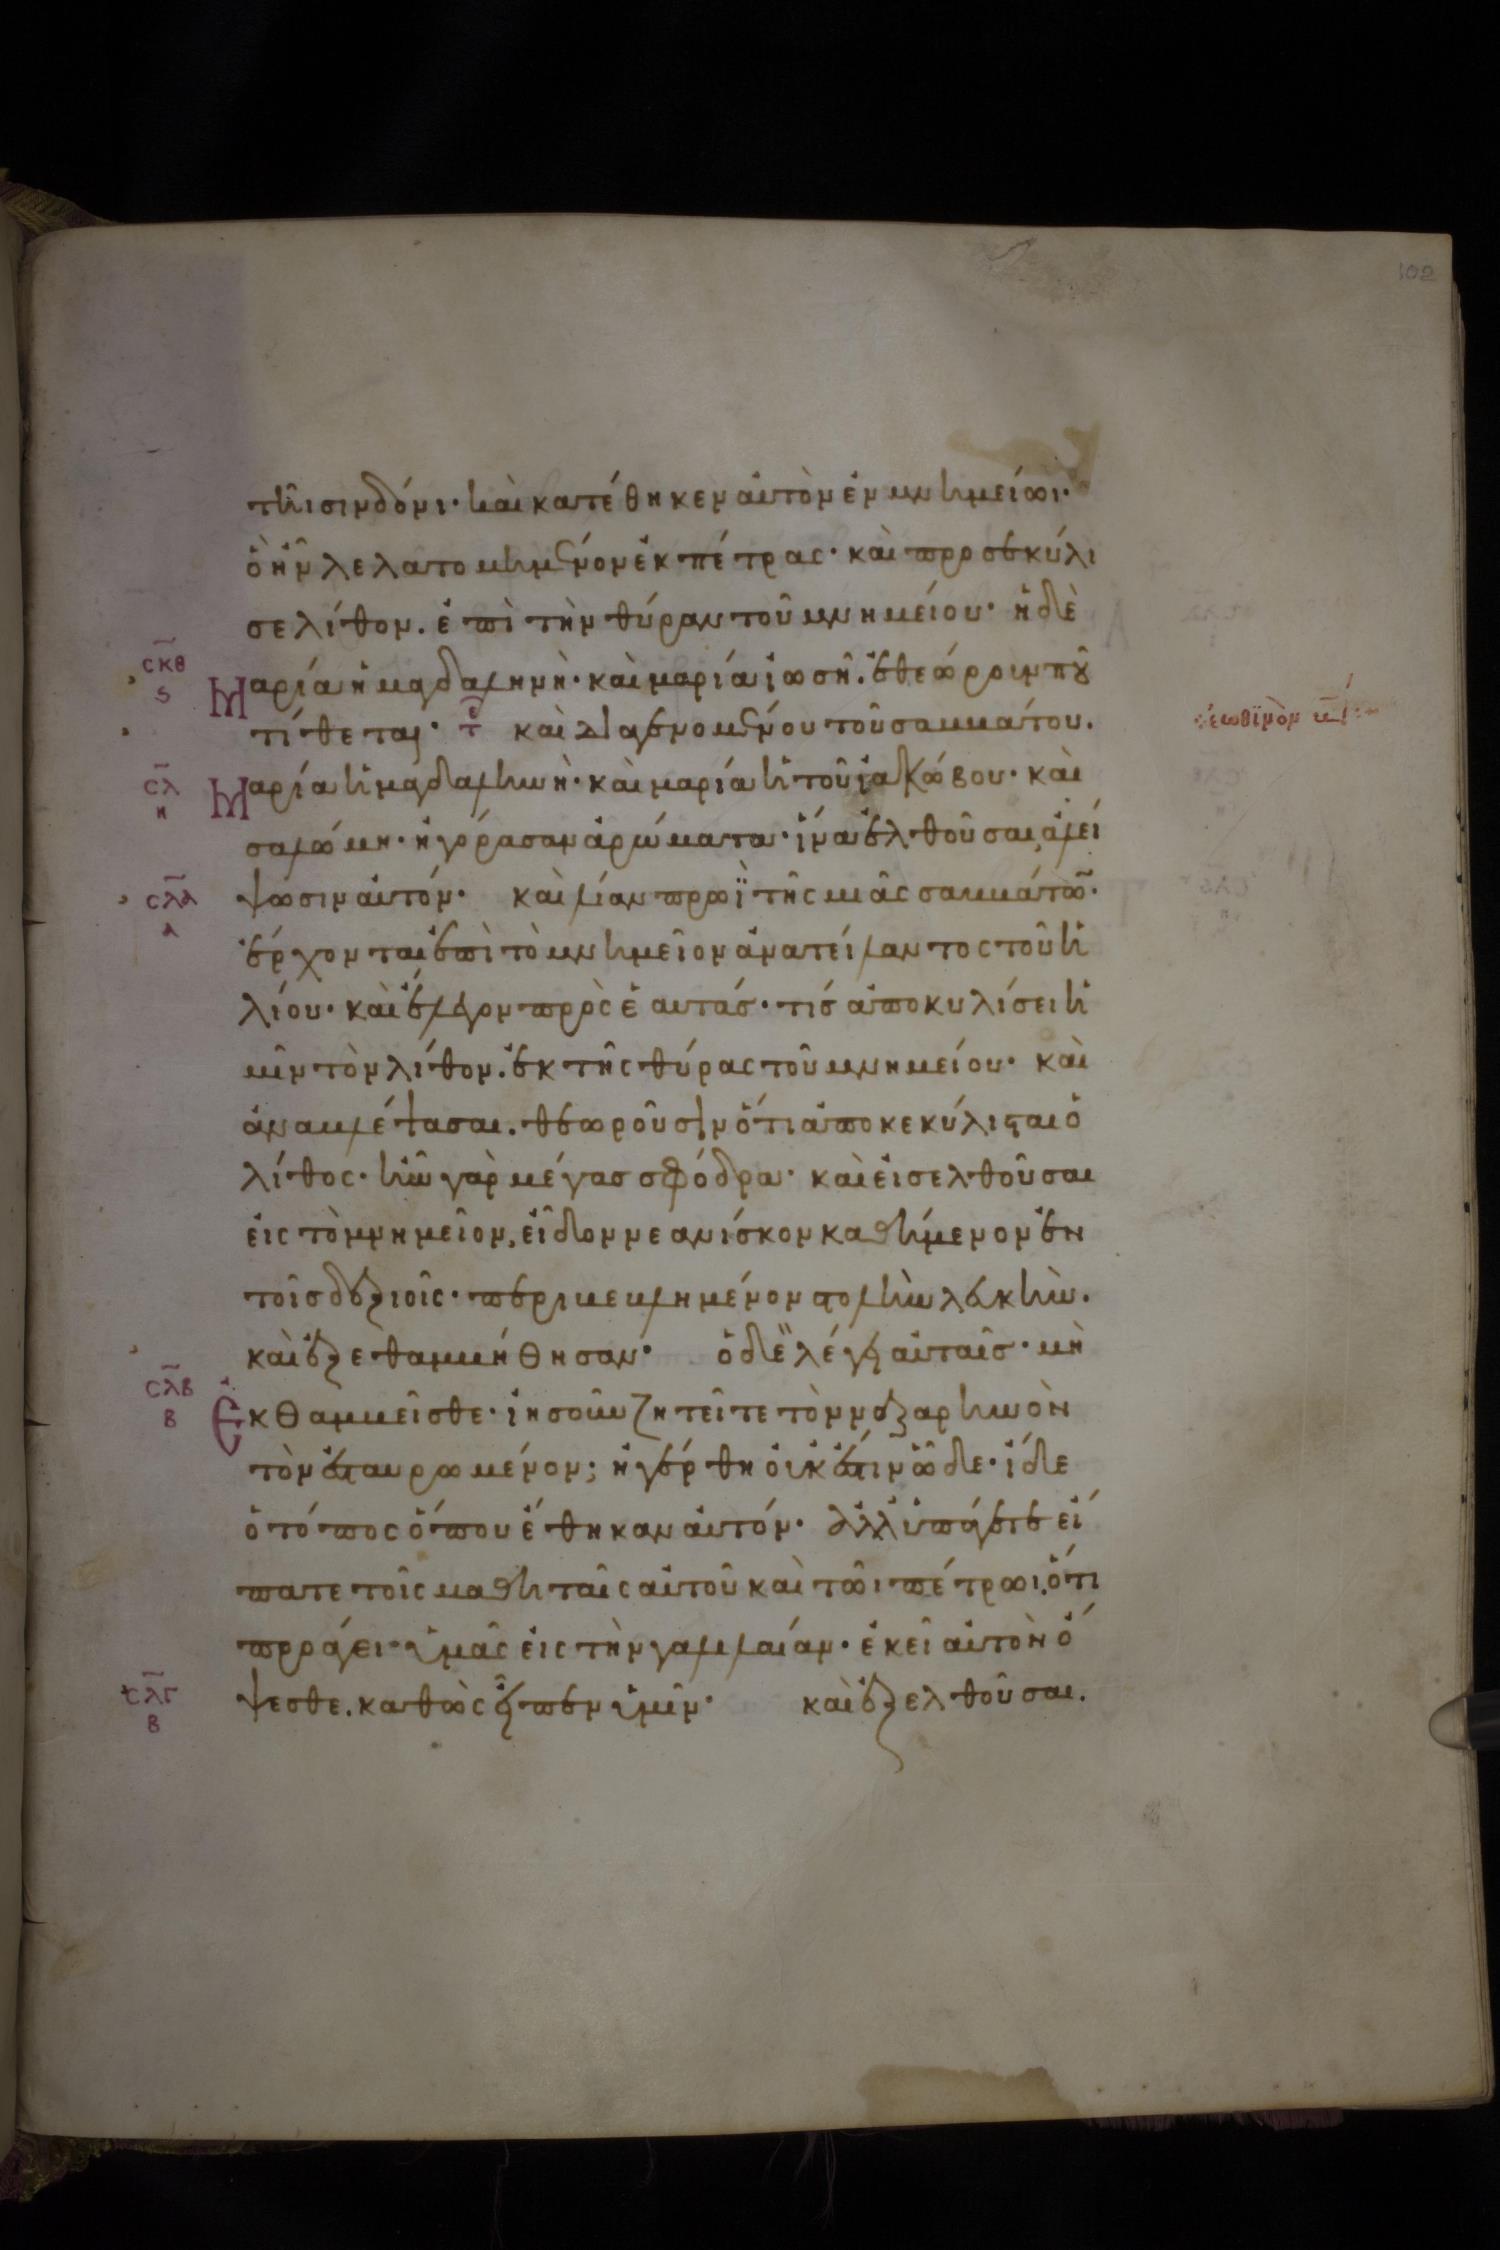 102
τῆι σινδόνι· καὶ κατέθηκεν αὐτὸν ἐν μνημείωι·
ὃ ἦν λελατομημένον ἐκ πέτρας· καὶ προσεκύλι
σε λίθον. ἐπὶ τὴν θύραν τοῦ μνημείου· ἡ δὲ
ϲκθ
ϛ
Μαρία ἡ μαγδαληνὴ· καὶ μαρία ἰωσῆ. ἐθεώρουν ποῦ
τίθεται· τε καὶ διαγενομένου τοῦ σαββάτου.
ἑωθϊνὸν
ϲλ
η
Μαρία ἡ μαγδαληνὴ· καὶ μαρία ἡ τοῦ ἰακώβου· καὶ
σαλώμη· ἠγόρασαν ἀρώματα· ἵνα ἐλθοῦσαι, ἀλεί
ϲλα
α
ψωσιν αὐτόν· καὶ λίαν πρωῒ τῆς μιᾶς σαββάτω̃·
ἔρχονται ἐπὶ τὸ μνημεῖον ἀνατείλαντος τοῦ ἡ
λίου· καὶ ἔλεγον πρὸς ἑαυτάσ· τίσ ἀποκυλίσει ἡ
μῖν τὸν λίθον. ἐκ τῆς θύρας τοῦ μνημείου· καὶ
ἀναβλέψασαι. θεωροῦσιν ὅτι ἀποκεκύλισται ὁ
λίθος· ἦν γὰρ μέγασ σφόδρα· καὶ εἰσελθοῦσαι
εἰς τὸ μνημεῖον, εἶδον νεανίσκον καθήμενον ἐν
τοῖσ δεξιοῖς· περιβεβλημένον στολὴν λευκὴν.
καὶ ἐξεθαμβήθησαν· ὁ δὲ λέγει αὐταῖσ· μὴ
ϲλβ
β
Ἐκθαμβεῖσθε· ἰησοῦν ζητεῖτε τὸν ναζαρηνὸν
τὸν ἐσταυρωμένον; ἠγέρθη οὐκ ἔστιν ὧδε· ἴδε
ὁ τόπος ὅπου ἔθηκαν αὐτόν· ἀλλ' ὑπάγετε εἴ
πατε τοῖς μαθηταῖς αὐτοῦ καὶ τῶι πέτρωι, ὅτι
προάγει ὑμᾶς εἰς τὴν γαλιλαίαν· ἐκεῖ αὐτὸν ὄ
ϲλγ
β
ψεσθε. καθὼς εἶπεν ὑμῖν· καὶ ἐξελθοῦσαι.